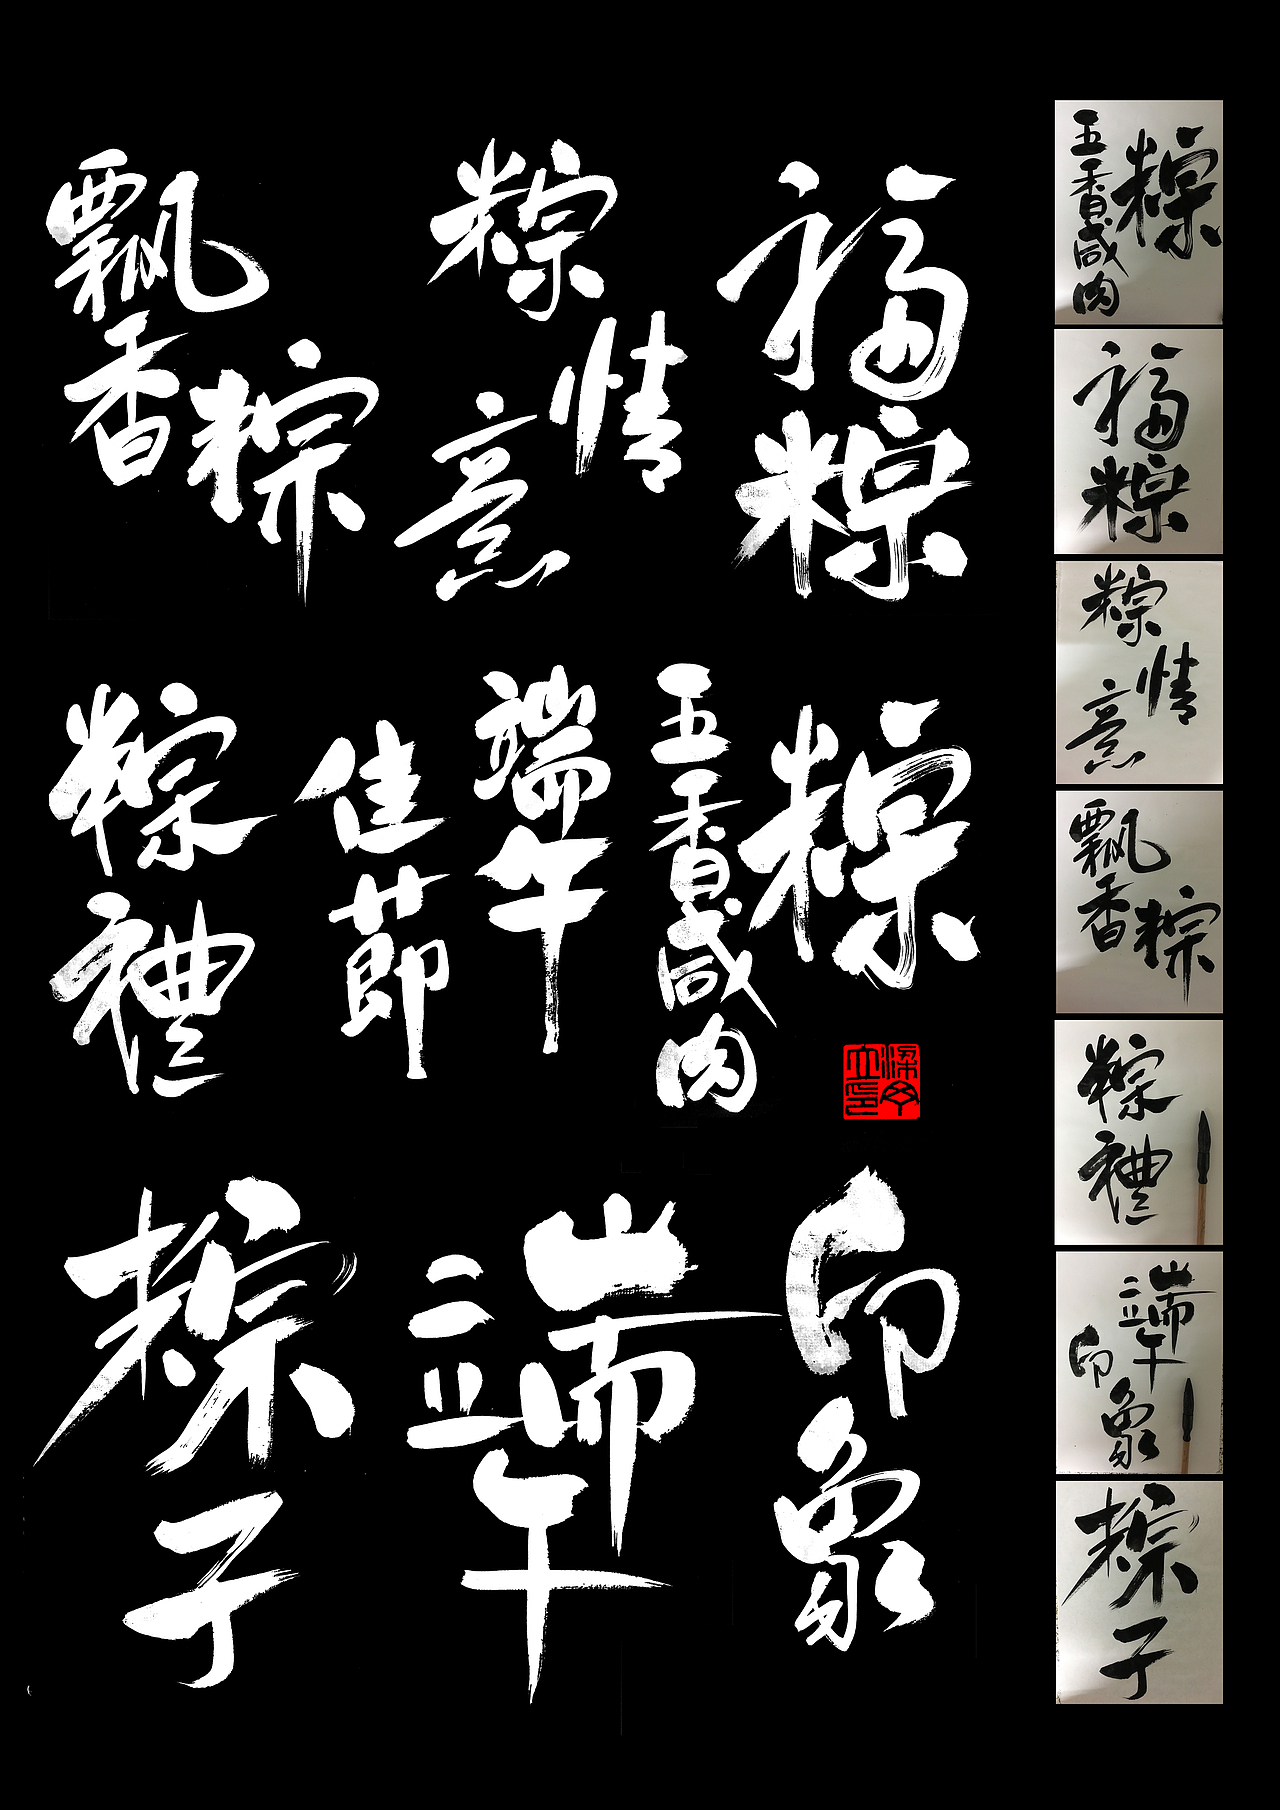 飘香粽
粽情意
福粽
粽禮
端午
佳節
五香咸肉粽
粽子
端午
印象
五香咸肉粽
福粽
粽情意
飘香粽
粽禮
端午
印象
粽子